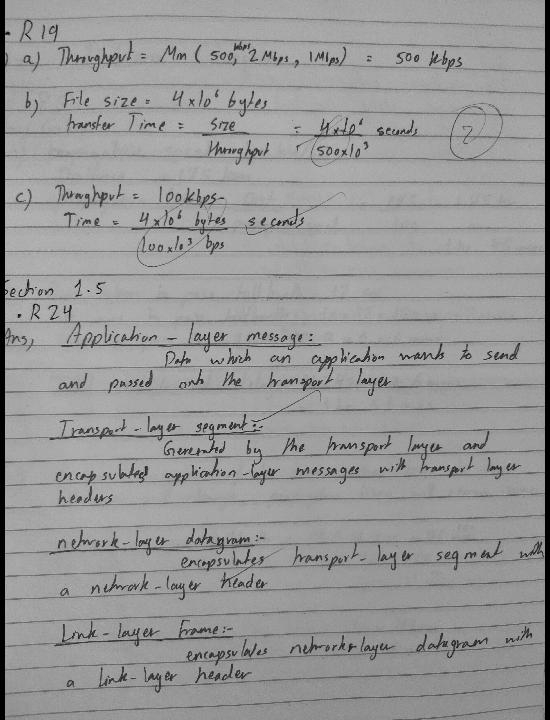 • R 19
a) Throughput = Min ( 500 kbps, 2 Mbps, 1 Mbps) = 500 kbps
b) File size = 4x10⁶ bytes
transfer Time = size / throughput = 4x10⁶ / 500x10³ seconds
2
c) Throughput = 100kbps-
Time = 4x10⁶ bytes / 100x10³ bps seconds
ection 1.5
• R 24
Ans, Application - layer message:
Data which an application wants to send
and passed onto the transport layer
Transport - layer segment:-
Generated by the transport layer and
encapsulates application-layer messages with transport layer
headers
network-layer datagram:-
encapsulates transport-layer segment with
a network-layer header
Link-layer Frame:-
encapsulates network-layer datagram with
a link-layer header